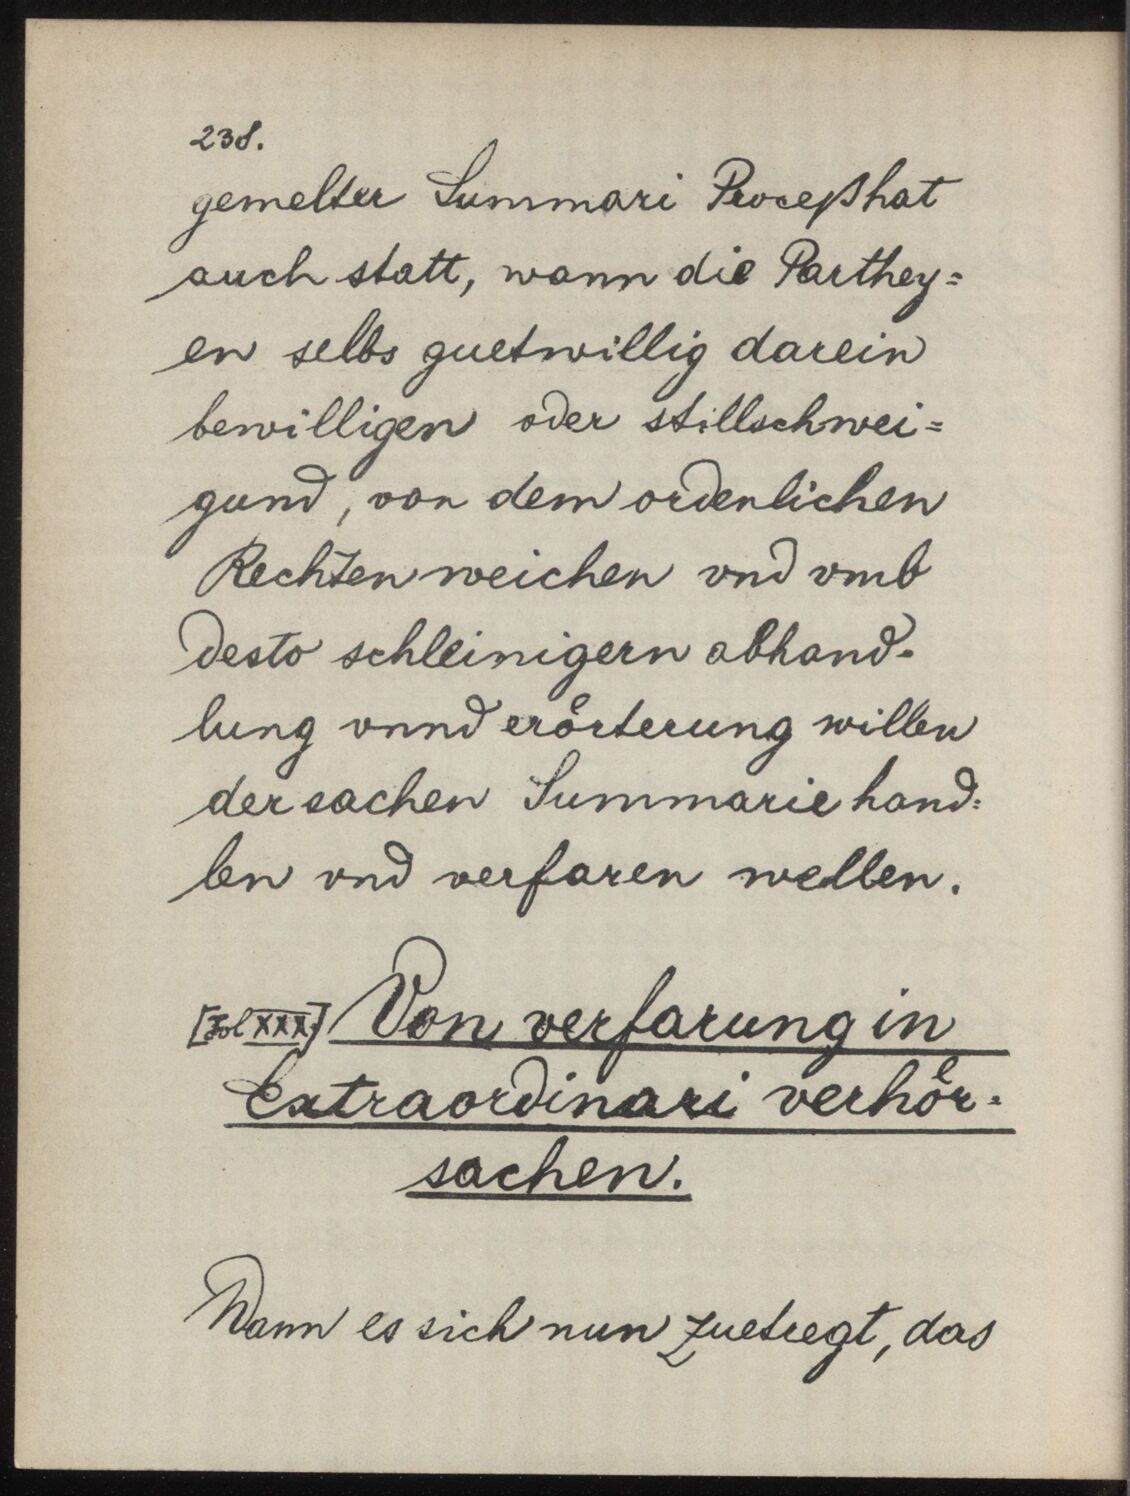 238.
gemelter Summari Proceß hat
auch statt, wann die Parthey=
en selbs guetwillig darein
bewilligen oder stillschwei=
gund, von dem ordenlichen
Rechten weichen vnd vmb
desto schleinigern abhand=
lung vnnd erörterung willen
der sachen Summarie hand=
len vnd verfaren wellen.
[Fol XXX.] Von verfarung in
Extraordinari verhör=
sachen.
Wann es sich nun zuetregt, das